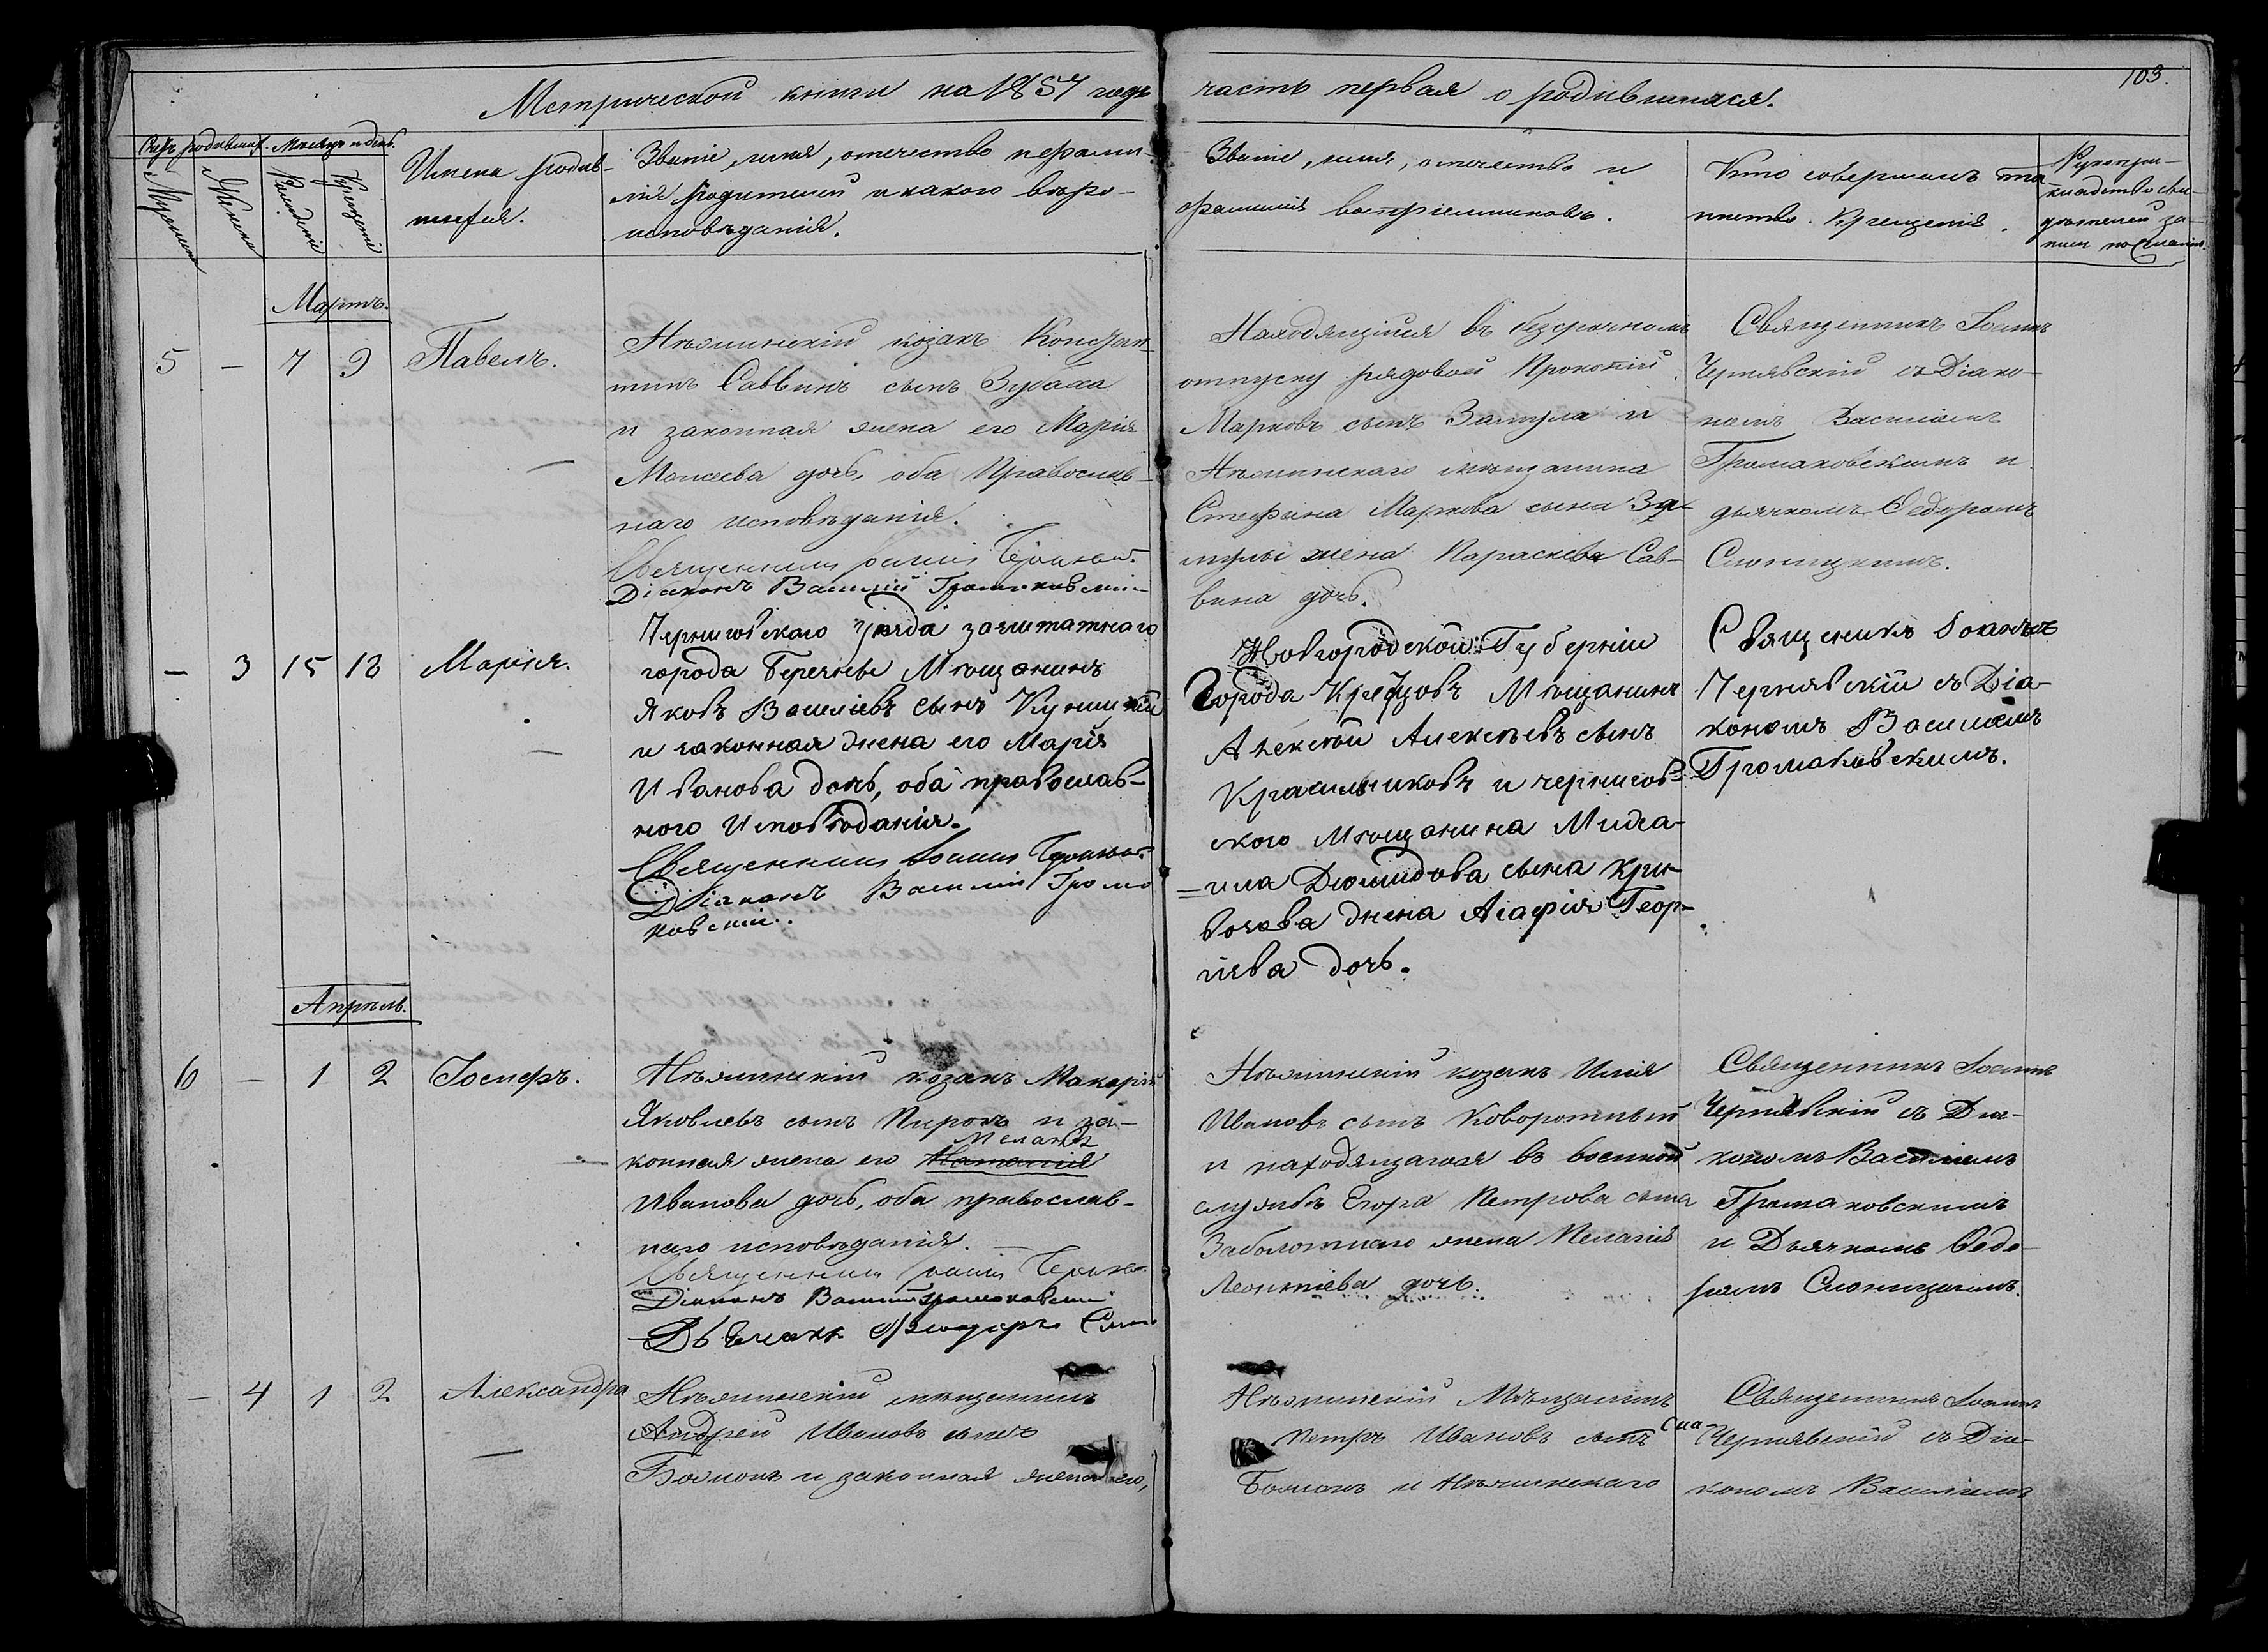 103.
Метрической книги на 1857 годъ
часть первая о родившихся.
Счетъ родившихся.
Мѣсяцъ и день.
Мужеска
Женска
Рожденія
Крещенія
Имена родив-
шихся.
Званіе, имя, отечество и фами-
лія родителей и какого вѣро-
исповѣданія.
Званіе, имя, отечество и
фамилія воспріемниковъ.
Кто совершалъ та-
инство Крещенія.
Рукопри-
кладство сви-
дѣтелей за-
писи по желанію.
Мартъ.
5 - 7 9 Павелъ.
Нѣжинскій козакъ Констан-
тинъ Саввинъ сынъ Зубаха
и законная жена его Марія
Моисеева дочь, оба Православ-
наго исповѣданія.
Священникъ Іоаннъ
Діаконъ Василій Громаковскій
Находящійся въ безсрочномъ
отпуску рядовой Прокопій
Марковъ сынъ Замула и
Нѣжинскаго мѣщанина
Стефана Маркова сына За-
мулы жена Параскева Сав-
вина дочь.
Священникъ Іоаннъ
Чернявскій съ Діако-
номъ Василіемъ
Громаковскимъ и
дьячкомъ Ѳедоромъ
Слоницкимъ.
- 3 15 18 Марія.
Черниговскаго уѣзда заштатнаго
города Березны Мѣщанинъ
Яковъ Василіевъ сынъ
и законная жена его Марія
Иванова дочь, оба православ-
ного Исповѣданія.
Священникъ Іоаннъ
Діаконъ Василій Громо
ковскій.
Новгородской Губерніи
Города Крестцовъ Мѣщанинъ
Алексѣй Алексѣевъ сынъ
Красильниковъ и чернигов-
ского Мѣщанина Миха-
ила Дюмидова сына Кри-
жена Агафія Геор-
гіева дочь.
Священикъ Іоаннъ
Чернявскій съ Діа-
кономъ Василіемъ
Громаковскимъ.
Апрѣль.
6 - 1 2 Іосифъ.
Нѣжинскій козакъ Макарій
Яковлевъ сынъ Пирогъ и за-
Меланія
конная жена его Наталія
Иванова дочь, оба православ-
наго исповѣданія.
Священникъ Іоаннъ
Діаконъ Василій Громаковскій
Дьячекъ
Нѣжинскій козакъ Илія
Ивановъ сынъ Коворотный
и находящагося въ военной
службѣ Егора Петрова сына
Заболотнаго жена Пелагія
Леонтіева дочь.
Священникъ Іоаннъ
Чернявскій съ Діа-
кономъ Василіемъ
Громаковскимъ
и Дьячкомъ Ѳедо-
ромъ Слоницкимъ.
- 4 1 2 Александра
Нѣжинскій мѣщанинъ
Андрей Ивановъ сынъ
Божонъ и законная жена его,
Нѣжинскій Мѣщанинъ
Петръ Ивановъ сынъ
Божонъ и Нѣжинскаго
Священникъ Іоаннъ
Чернявскій съ Діа-
кономъ Василіемъ